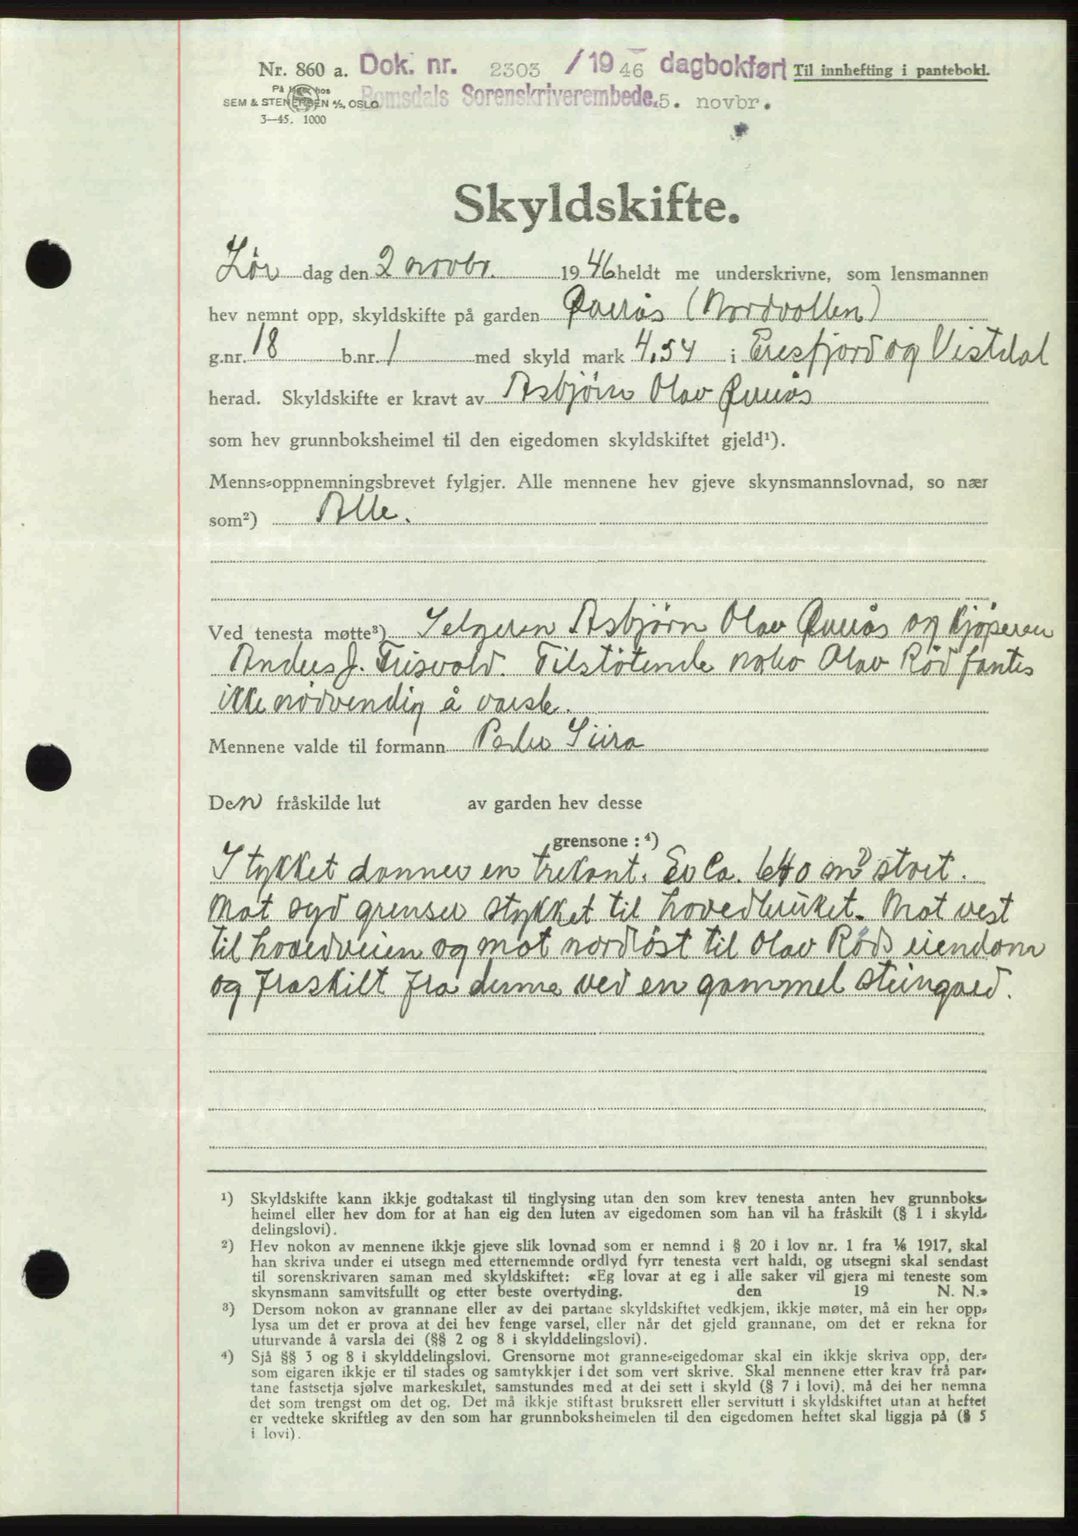 Nr. 860 a. Dok. nr. 2303 / 19 46 dagbokført Til innhefting i pantebok.
På lager hos
SEM & STENERSEN A/S, OSLO. Romsdals Sorenskriverembede. 5. novbr.
3—45. 1000
Skyldskifte.
Lør dag den 2 novbr. 19 46 heldt me underskrivne, som lensmannen
hev nemnt opp, skyldskifte på garden Øverås (Nordvollen)
g.nr. 18 b.nr. 1 med skyld mark 4,54 i Eresfjord og Vistdal
herad. Skyldskifte er kravt av Asbjørn Olav Øverås
som hev grunnboksheimel til den eigedomen skyldskiftet gjeld¹).
Menns-oppnemningsbrevet fylgjer. Alle mennene hev gjeve skynsmannslovnad, so nær
som²) Alle.
Ved tenesta møtte³) Selgeren Asbjørn Olav Øverås og kjøperen
Anders J. Frisvold. Tilstøtende nabo Olav Rød fantes
ikke nødvendig å varsle.
Mennene valde til formann Peder Siira
Den fråskilde lut av garden hev desse
grensone : ⁴)
Stykket danner en trekant. Er Ca. 640 m² stort.
Mot syd grenser stykket til hovedbruket. Mot vest
til hovedveien og mot nordøst til Olav Røds eiendom
og fraskilt fra denne ved en gammel steingard.
¹) Skyldskifte kann ikkje godtakast til tinglysing utan den som krev tenesta anten hev grunnboks-
heimel eller hev dom for at han eig den luten av eigedomen som han vil ha fråskilt (§ 1 i skyld-
delingslovi).
²) Hev nokon av mennene ikkje gjeve slik lovnad som er nemnd i § 20 i lov nr. 1 fra ⅙ 1917, skal
han skriva under ei utsegn med etternemnde ordlyd fyrr tenesta vert haldi, og utsegni skal sendast
til sorenskrivaren saman med skyldskiftet: «Eg lovar at eg i alle saker vil gjera mi teneste som
skynsmann samvitsfullt og etter beste overtyding. den 19 N. N.»
³) Dersom nokon av grannane eller av dei partane skyldskiftet vedkjem, ikkje møter, må ein her opp-
lysa um det er prova at dei hev fenge varsel, eller når det gjeld grannane, om det er rekna for
uturvande å varsla dei (§§ 2 og 8 i skylddelingslovi).
⁴) Sjå §§ 3 og 8 i skylddelingslovi. Grensorne mot granne-eigedomar skal ein ikkje skriva opp, der-
som eigaren ikkje er til stades og samtykkjer i det som vert skrive. Skal mennene etter krav frå par-
tane fastsetja sjølve markeskilet, samstundes med at dei sett i skyld (§ 7 i lovi), må dei her nemna
det som trengst om det og. Det må ikkje stiftast bruksrett eller servitutt i skyldskiftet utan at heftet
er vedteke skriftleg av den som har grunnboksheimelen til den eigedomen heftet skal liggja på (§ 5
i lovi).